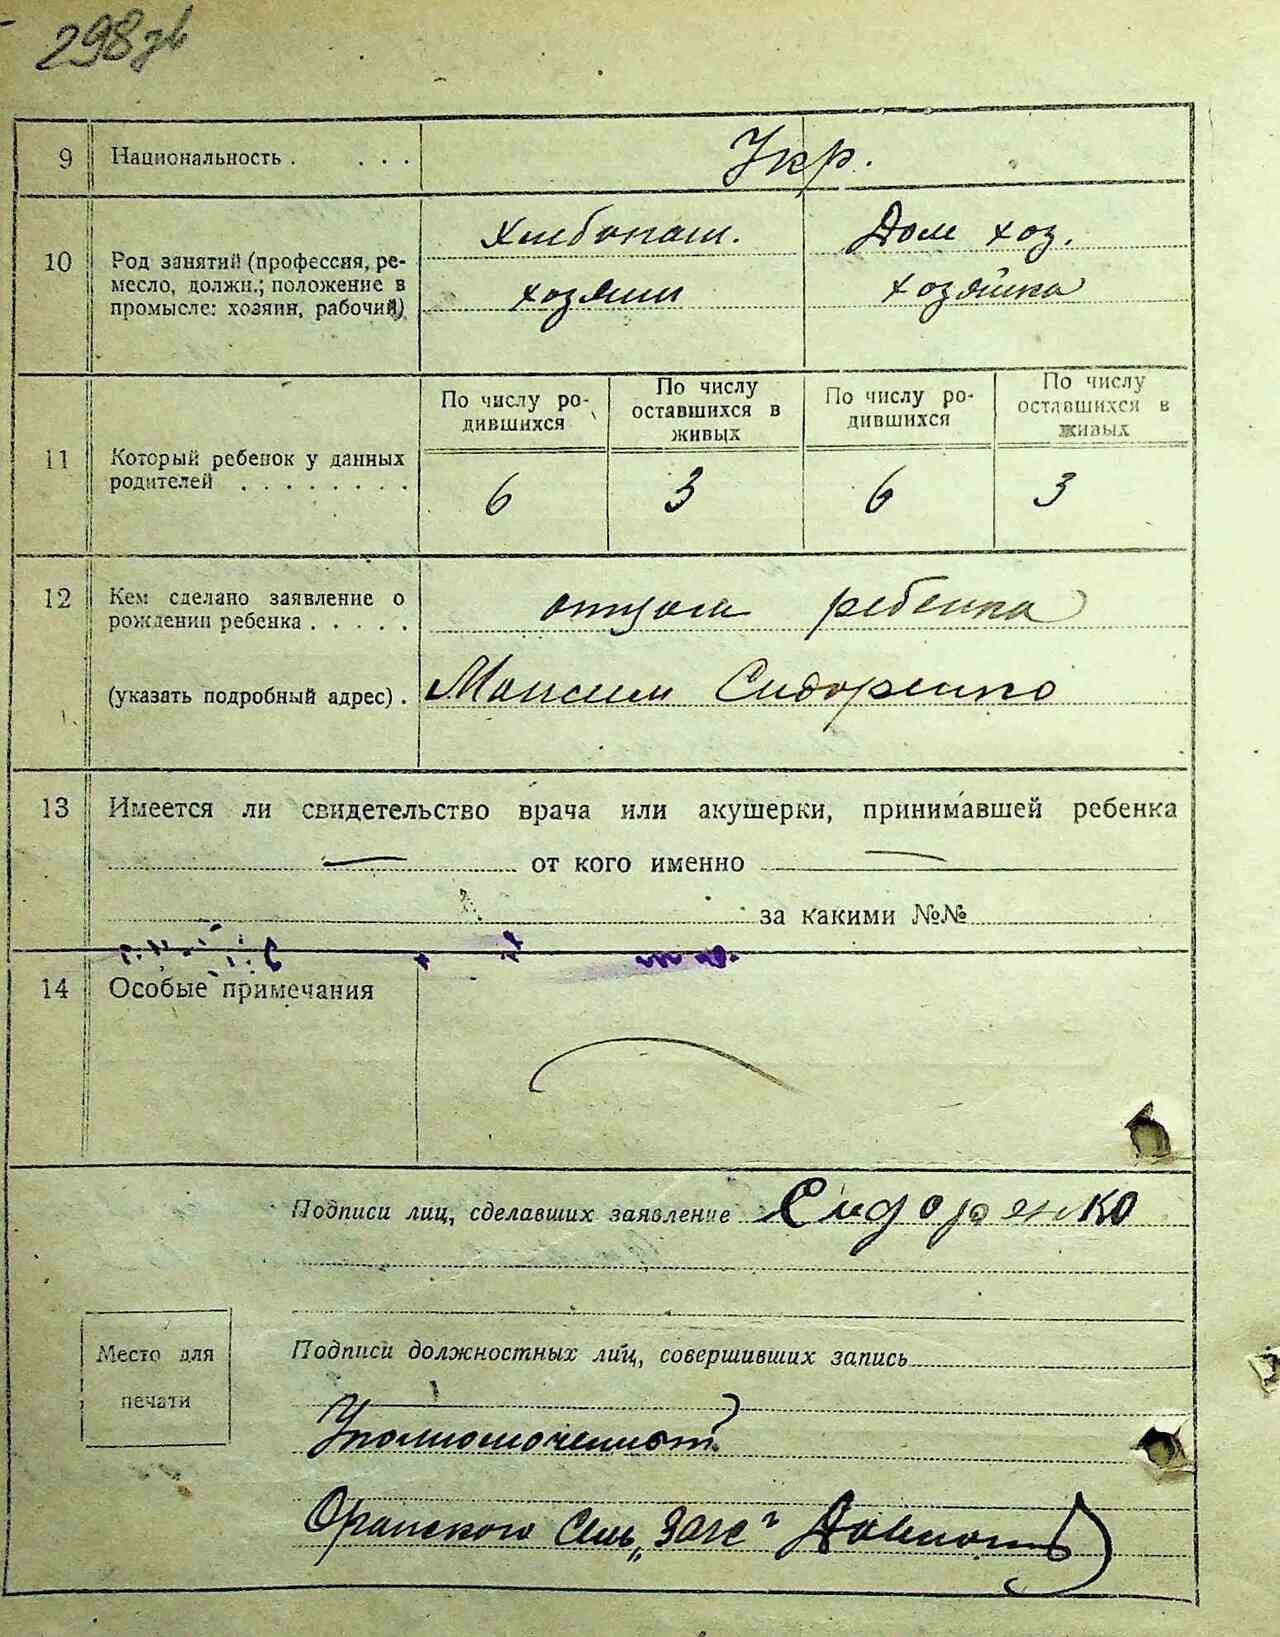 298зв
9 Национальность . . . . Укр.
10 Род занятий (профессия, ре-
месло, должн.; положение в
промысле: хозяин, рабочий)
Хлебопаш. Дом хоз.
хозяин хозяйка
11 Который ребенок у данных
родителей . . . . . . . .
По числу ро-
дившихся
По числу
оставшихся в
живых
По числу ро-
дившихся
По числу
оставшихся в
живых
6 3 6 3
12 Кем сделано заявление о
рождении ребенка . . . . .
отцом ребенка
(указать подробный адрес) . Максим Сидоренко
13 Имеется ли свидетельство врача или акушерки, принимавшей ребенка
от кого именно
за какими №№
14 Особые примечания
Подписи лиц, сделавших заявление Сидоренко
Место для
печати
Подписи должностных лиц, совершивших запись
Уполномоченный
Оранского Сель „Загс"